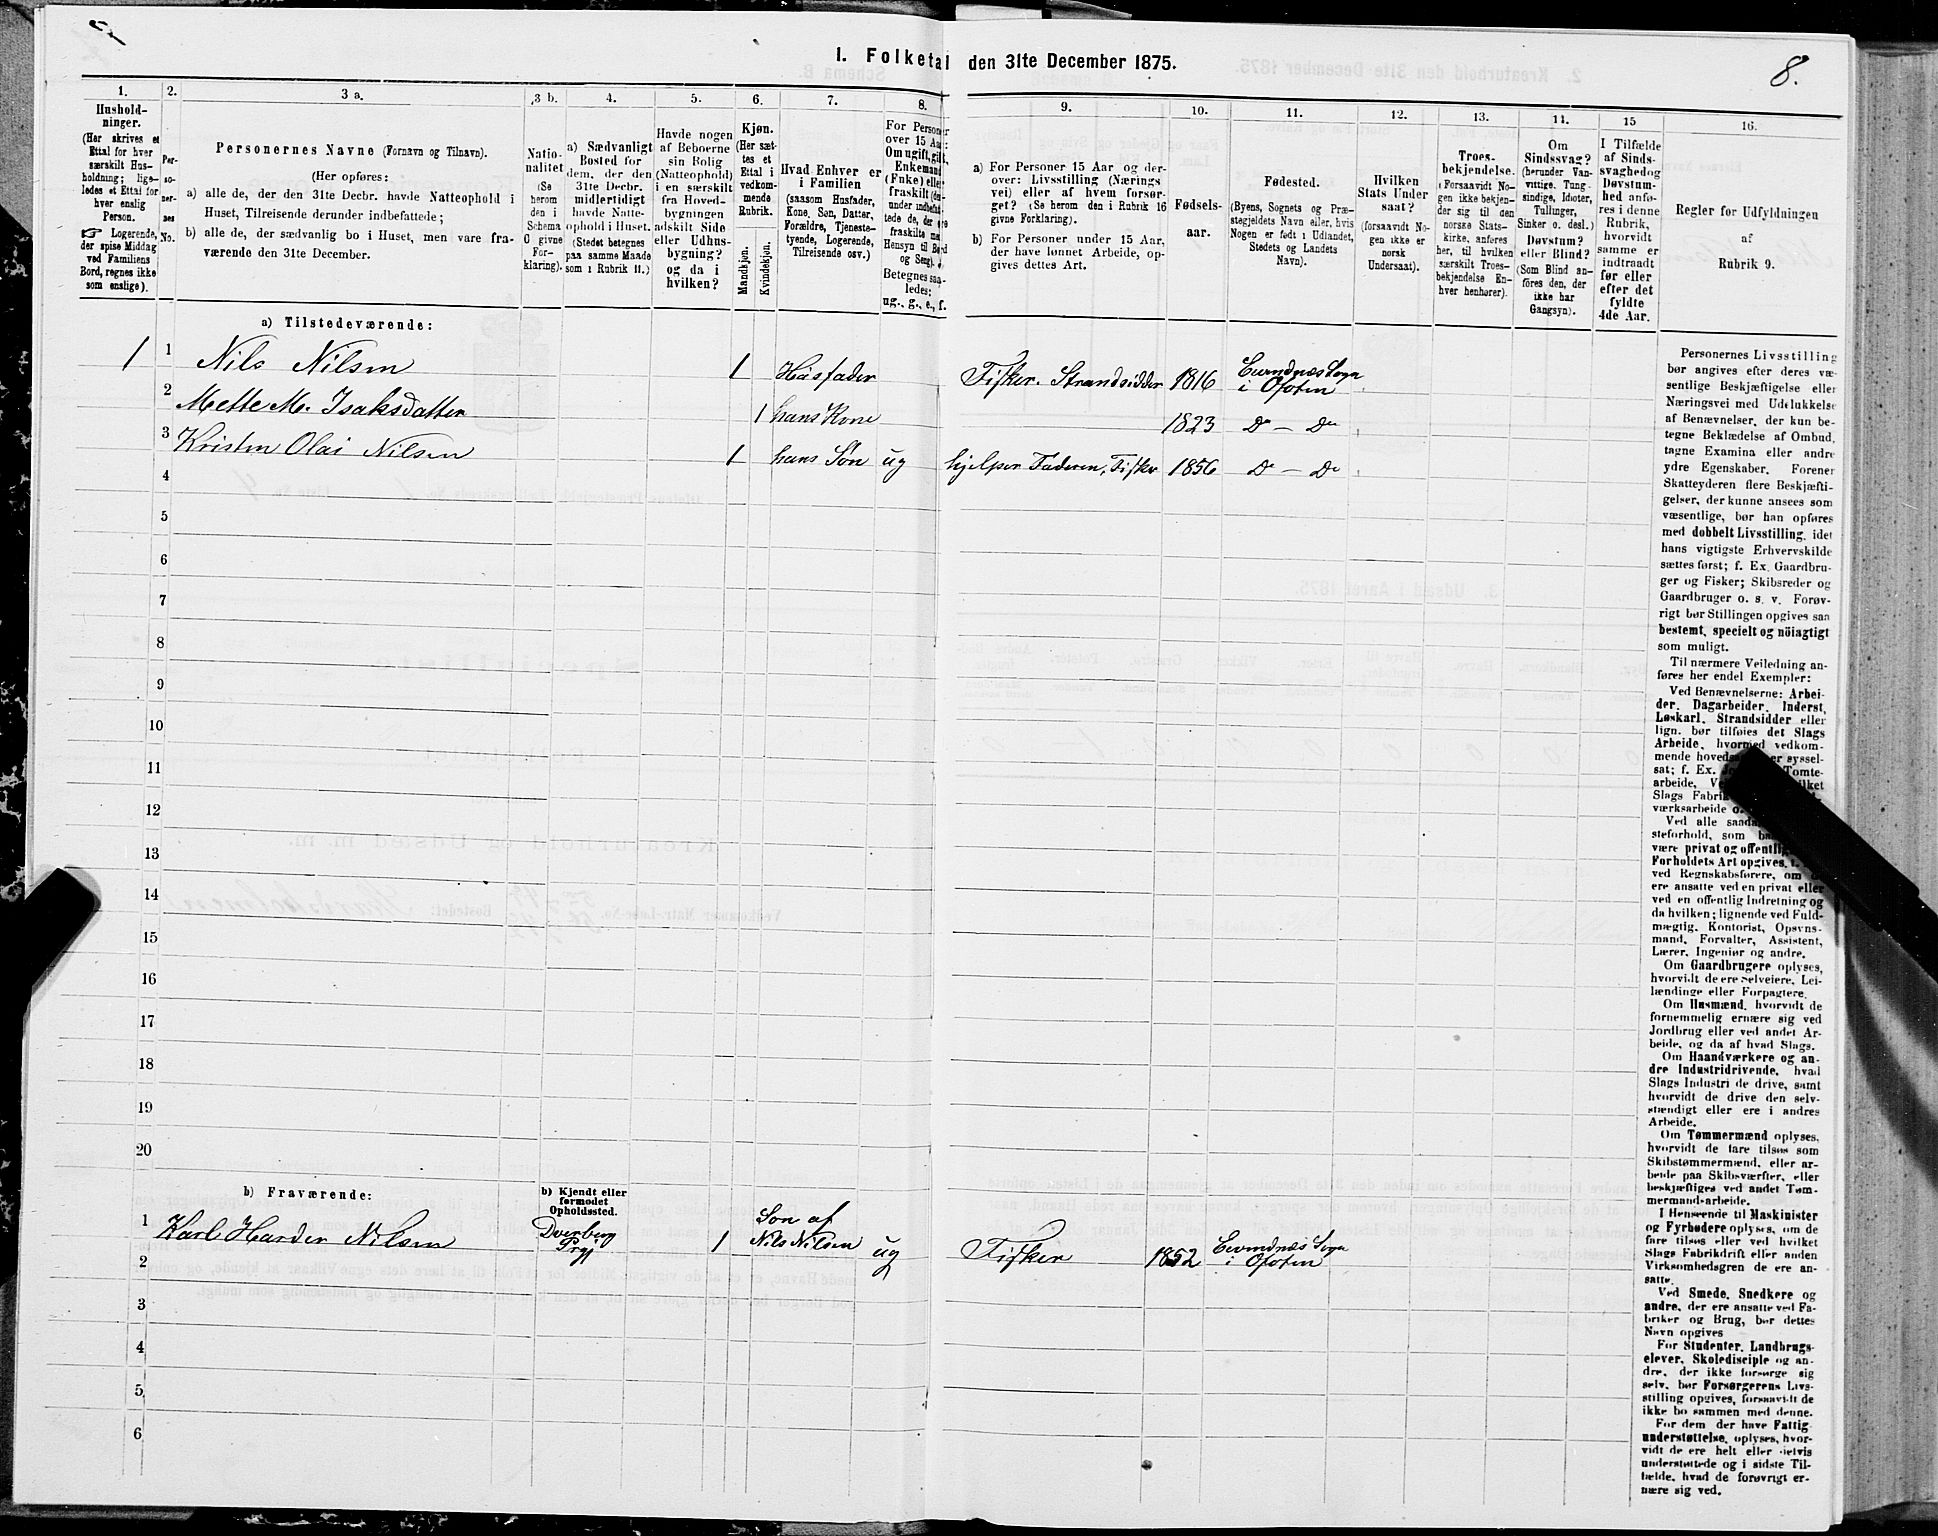 I. Folketal den 31te December 1875.
8.
1.
Hushold-
ninger.
(Her skrives et
Ettal for hver
særskilt Hus-
holdning; lige-
ledes et Ettal for
hver enslig
Person.
Logerende,
der spise Middag
ved Familiens
Bord, regnes ikke
som enslige).
2.
Per-
so-
ner-
nes
No.
3 a.
Personernes Navne (Fornavn og Tilnavn).
(Her opføres:
a) alle de, der den 31te Decbr. havde Natteophold i
Huset, Tilreisende derunder indbefattede;
b) alle de, der sædvanlig bo i Huset, men vare fra-
værende den 31te December.
3 b.
Natio-
nalitet
(Se
herom
den i
Schema
C givne
For-
klaring).
4.
a) Sædvanligt
Bosted for
dem, der den
31te Decbr.
midlertidigt
havde Natte-
ophold i Huset.
(Stedet betegnes
paa samme Maade
som i Rubrik 11.)
5.
Havde nogen
af Beboerne
sin Bolig
(Natteophold)
i en særskilt
fra Hoved-
bygningen
adskilt Side-
eller Udhus-
bygning?
og da i
hvilken?
6.
Kjøn.
(Her sæt-
tes et
Ettal i
vedkom-
mende
Rubrik.
Mandkjøn.
Kvindekjøn.
7.
Hvad Enhver er
i Familien
(saasom Husfader,
Kone, Søn, Datter,
Forældre, Tjeneste-
tyende, Logerende,
Tilreisende osv.)
8.
For Personer
over 15 Aar:
Om ugift, gift,
Enkemand
(Enke) eller
fraskilt
Betegnes saa-
ledes:
ug., g., e., f.
9.
a) For Personer 15 Aar og der-
over: Livsstilling (Nærings
vei) eller af hvem forsør-
get? (Se herom den i Rubrik 16
givne Forklaring).
b) For Personer under 15 Aar,
der have lønnet Arbeide, op-
gives dettes Art.
10.
Fødsels-
aar.
11.
Fødested.
(Byens, Sognets og Præ-
stegjeldets Navn eller, hvis
Nogen er født i Udlandet,
Stedets og Landets
Navn).
12.
Hvilken
Stats Under
saat?
(forsaavidt No-
gen ikke er
norsk
Undersaat).
13.
Troes-
bekjendelse.
(Forsaavidt No-
gen ikke bekjen-
der sig til den
norske Stats-
kirke, anføres
her, til hvilken
særskilt Troes-
bekjendelse En-
hver henhører).
14.
Om
Sindssvag?
(herunder Van-
vittige, Tung-
sindige, Idioter,
Tullinger,
Sinker o. desl.)
Døvstum?
eller Blind?
(Som Blind an-
føres den, der
ikke har
Gangsyn).
15
I Tilfælde
af Sinds-
svaghed og
Døvstum-
hed anfø-
res i denne
Rubrik,
hvorvidt
samme er
indtraadt
før eller
efter det
fyldte
4de Aar.
16.
Regler for Udfyldningen
af
Rubrik 9.
a) Tilstedeværende:
1 1 Nils Nilsen 1 Husfader Fisker. Strandsidder 1816 Evendnæs Sogn
i Ofoten
2 Mette M. Isaksdatter 1 hans Kone 1823 Do — Do
3 Kristen Olai Nilsen 1 hans Søn ug hjelper Faderen, Fisker 1856 Do — Do
4
5
6
7
8
9
10
11
12
13
14
15
16
17
18
19
20
b) Fraværende:
b) Kjendt eller
formodet
Opholdssted.
1 Karl Harder Nilsen Dverberg
Prgj 1 Søn af
Nils Nilsen ug Fisker 1852 Evendnæs Sogn
i Ofoten
2
3
4
5
6
Personernes Livsstilling
bør angives efter deres væ-
sentlige Beskjæftigelse eller
Næringsvei med Udelukkelse
af Benævnelser, der kun be-
tegne Beklædelse af Ombud,
tagne Examina eller andre
ydre Egenskaber. Forener
Skatteyderen flere Beskjæfti-
gelser, der kunne ansees som
væsentlige, bør han opføres
med dobbelt Livsstilling, idet
hans vigtigste Erhvervskilde
sættes først; f. Ex. Gaardbru-
ger og Fisker; Skibsreder og
Gaardbruger o. s. v. Forøv-
rigt bør Stillingen opgives saa
bestemt, specielt og nöiagtigt
som muligt.
Til nærmere Veiledning an-
føres her endel Exempler:
Ved Benævnelserne: Arbei-
der, Dagarbeider, Inderst,
Løskarl, Strandsidder eller
lign. bør tilføies det Slags
Arbeide, hvormed vedkom-
mende er syssel-
sat; f. Ex. Tomte-
arbeide,
Slags
værksarbeide
Ved alle
steforhold, som
være privat og
Forholdets Art opgives,
ved Regnskabsførere, om
ere ansatte ved en privat eller
ved en offentlig Indretning og
da hvilken; lignende ved Fuld-
mægtig, Kontorist, Opsyns-
mand, Forvalter, Assistent,
Lærer, Ingeniør og andre.
Om Gaardbrugere oplyses,
hvorvidt de ere Selveiere, Lei-
lændinge eller Forpagtere.
Om Husmænd, hvorvidt de
fornemmelig ernære sig ved
Jordbrug eller ved andet Ar-
beide, og da af hvad Slags.
Om Haandværkere og an-
dre Industridrivende, hvad
Slags Industri de drive, samt
hvorvidt de drive den selv-
stændigt eller ere i andres
Arbeide.
Om Tømmermænd oplyses,
hvorvidt de fare tilsøs som
Skibstømmermænd, eller ar-
beide paa Skibsværfter, eller
beskjæftiges ved andet Tøm-
mermand-arbeide.
I Henseende til Maskinister
og Fyrbødere oplyses, om de
fare tilsøs eller ved hvilket
Slags Fabrikdrift eller anden
Virksomhedsgren de ere an-
satte.
Ved Smede, Snedkere og
andre, der ere ansatte ved Fa-
briker og Brug, bør dettes
Navn opgives
For Studenter, Landbrugs-
elever, Skoledisciple og an-
dre, der ikke forsørge sig
selv, bør Forsørgerens Livs-
stilling opgives, forsaavidt de
ikke bo sammen med denne.
For dem der have Fattig
understøttelse, oplyses, hvor-
vidt de ere helt eller delvis
understøttede og i sidste Til-
fælde, hvad de forøvrigt er-
nære sig ved.